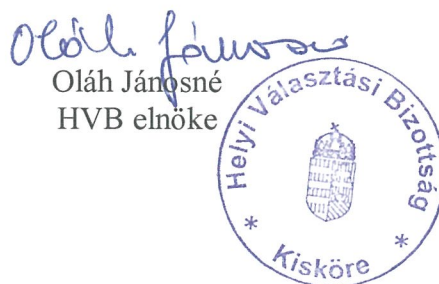 Oláh Jánosné
Oláh Jánosné
HVB elnöke
Helyi Választási Bizottság
* Kisköre *